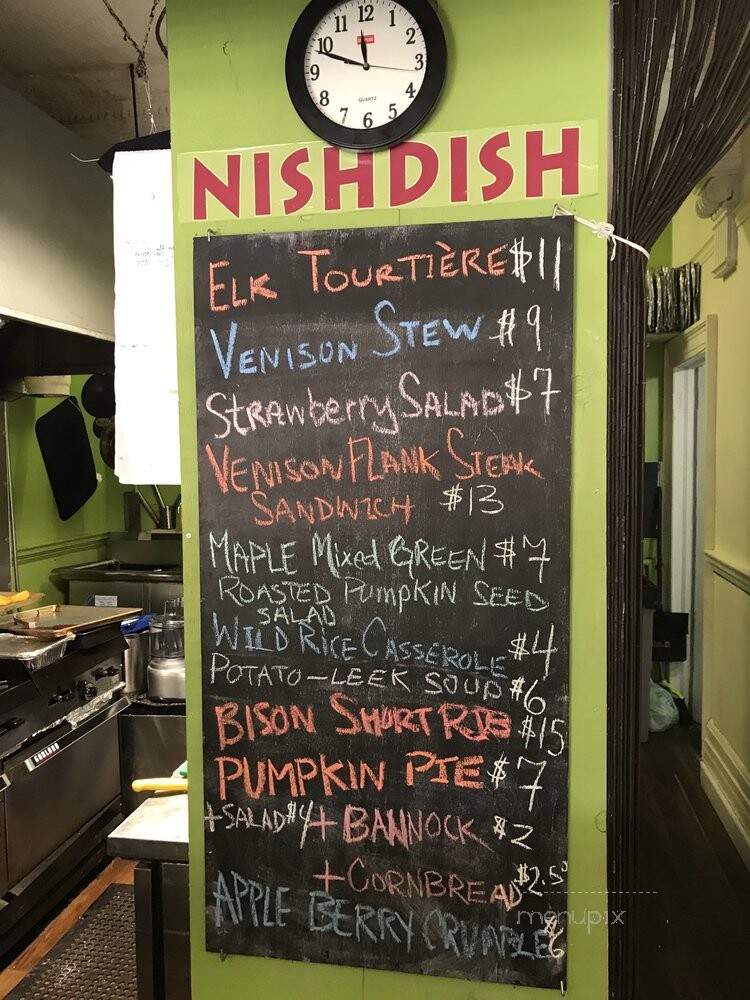 11 12 1
10 2
9 3
8 4
7 6 5
QUARTZ
NISHDISH
ELK TOURTIÈRE $11
VENISON STEW $9
STRAWberry SALAD $7
VENISON FLANK STEAK
SANDWICH $13
MAPLE Mixed GREEN $7
ROASTED PUMPKIN SEED
SALAD
WILD RICE CASSEROLE $4
POTATO-LEEK SOUP $6
BISON SHORT RIB $15
PUMPKIN PIE $7
+SALAD $4 + BANNOCK $2
+CORNBREAD $2.50
APPLE BERRY CRUMBLE $6
menupix
GARLAND